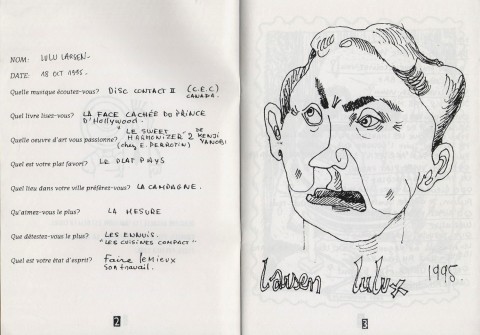 NOM: LULU LARSEN.
DATE: 18 OCT 1995.
Quelle musique écoutez-vous? DISC CONTACT II (C.E.C)
CANADA.
Quel livre lisez-vous? LA FACE CACHÉE DU PRINCE
D'HOLLYWOOD.
"LE SWEET DE
Quelle oeuvre d'art vous passionne? HARMONIZER" 2 KENJI
(chez E. PERROTIN) YANOBI
Quel est votre plat favori? LE PLAT PAYS
Quel lieu dans votre ville préférez-vous? LA CAMPAGNE.
Qu'aimez-vous le plus? LA MESURE
Que détestez-vous le plus? LES ENNUIS.
"LES CUISINES COMPACT"
Quel est votre état d'esprit? Faire le mieux
son travail.
2
larsen lulu 1995.
3